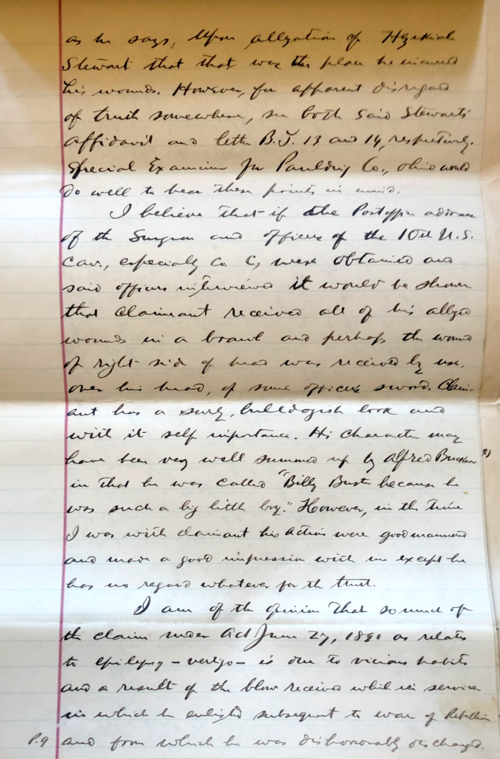 as he says, upon allegation of Hezekiah
Stewart that that was the place he incurred
his wounds. However, for apparent disregard
of truth somewhere, see both said Stewarts
affidavit and letter B.J. 13 and 14, respectively.
Special Examiner for Paulding Co., Ohio would
do well to bear these points in mind.
I believe that if the Postoffice address
of the Surgeon and officers of the 10th U.S.
Cav., especially Co. C, were obtained and
said officers interviewed it would be shown
that claimant received all of his alleged
wounds in a brawl and perhaps the wound
of right side of head was received by use,
over his head, of some officers sword. Claim-
ant has a surly, bulldogish look and
with it self importance. His character may
have been very well summed up by Alfred
in that he was called "Billy Bust because he
was such a big little boy." However, in the time
I was with claimant his action were good mannered
and made a good impression with me except he
has no regard whatever for the truth.
I am of the opinion that so much of
the claim under Act June 27, 1890 as relates
to epilepsy - vertigo - is due to vicious habits
and a result of the blow received while in service
in which he enlisted subsequent to war of Rebellion
P.9 and from which he was dishonorably discharged.